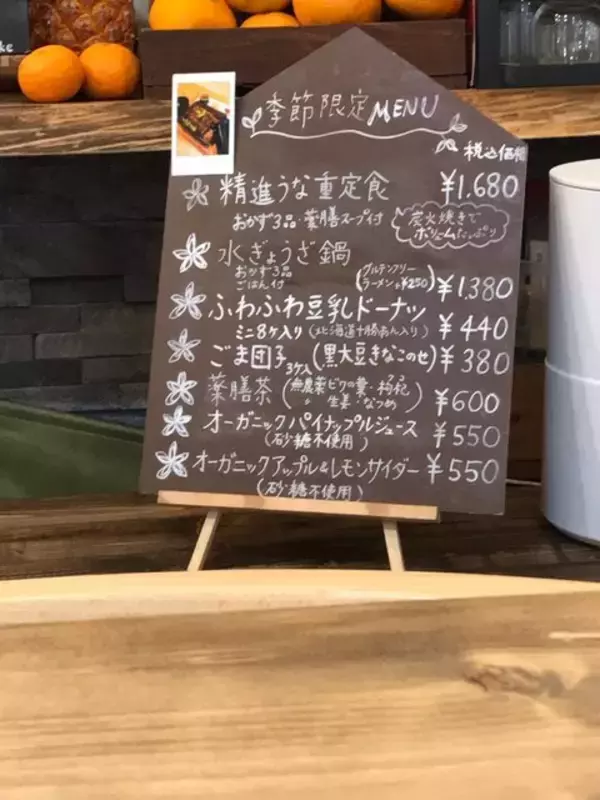 ke
季節限定MENU
税込価格
精進うな重定食 ¥1.680
おかず3品・薬膳スープ付
炭火焼きで
ボリュームたっぷり
水ぎょうざ鍋
おかず3品
ごはん付
グルテンフリー
ラーメン+¥250
¥1.380
ふわふわ豆乳ドーナッツ
ミニ8ケ入り(北海道十勝あん入り) ¥440
ごま団子3ケ入(黒大豆きなこのせ) ¥380
薬膳茶(無農薬ビワの葉・枸杞
・生姜・なつめ) ¥600
オーガニックパイナップルジュース ¥550
(砂糖不使用)
オーガニックアップル&レモンサイダー ¥550
(砂糖不使用)